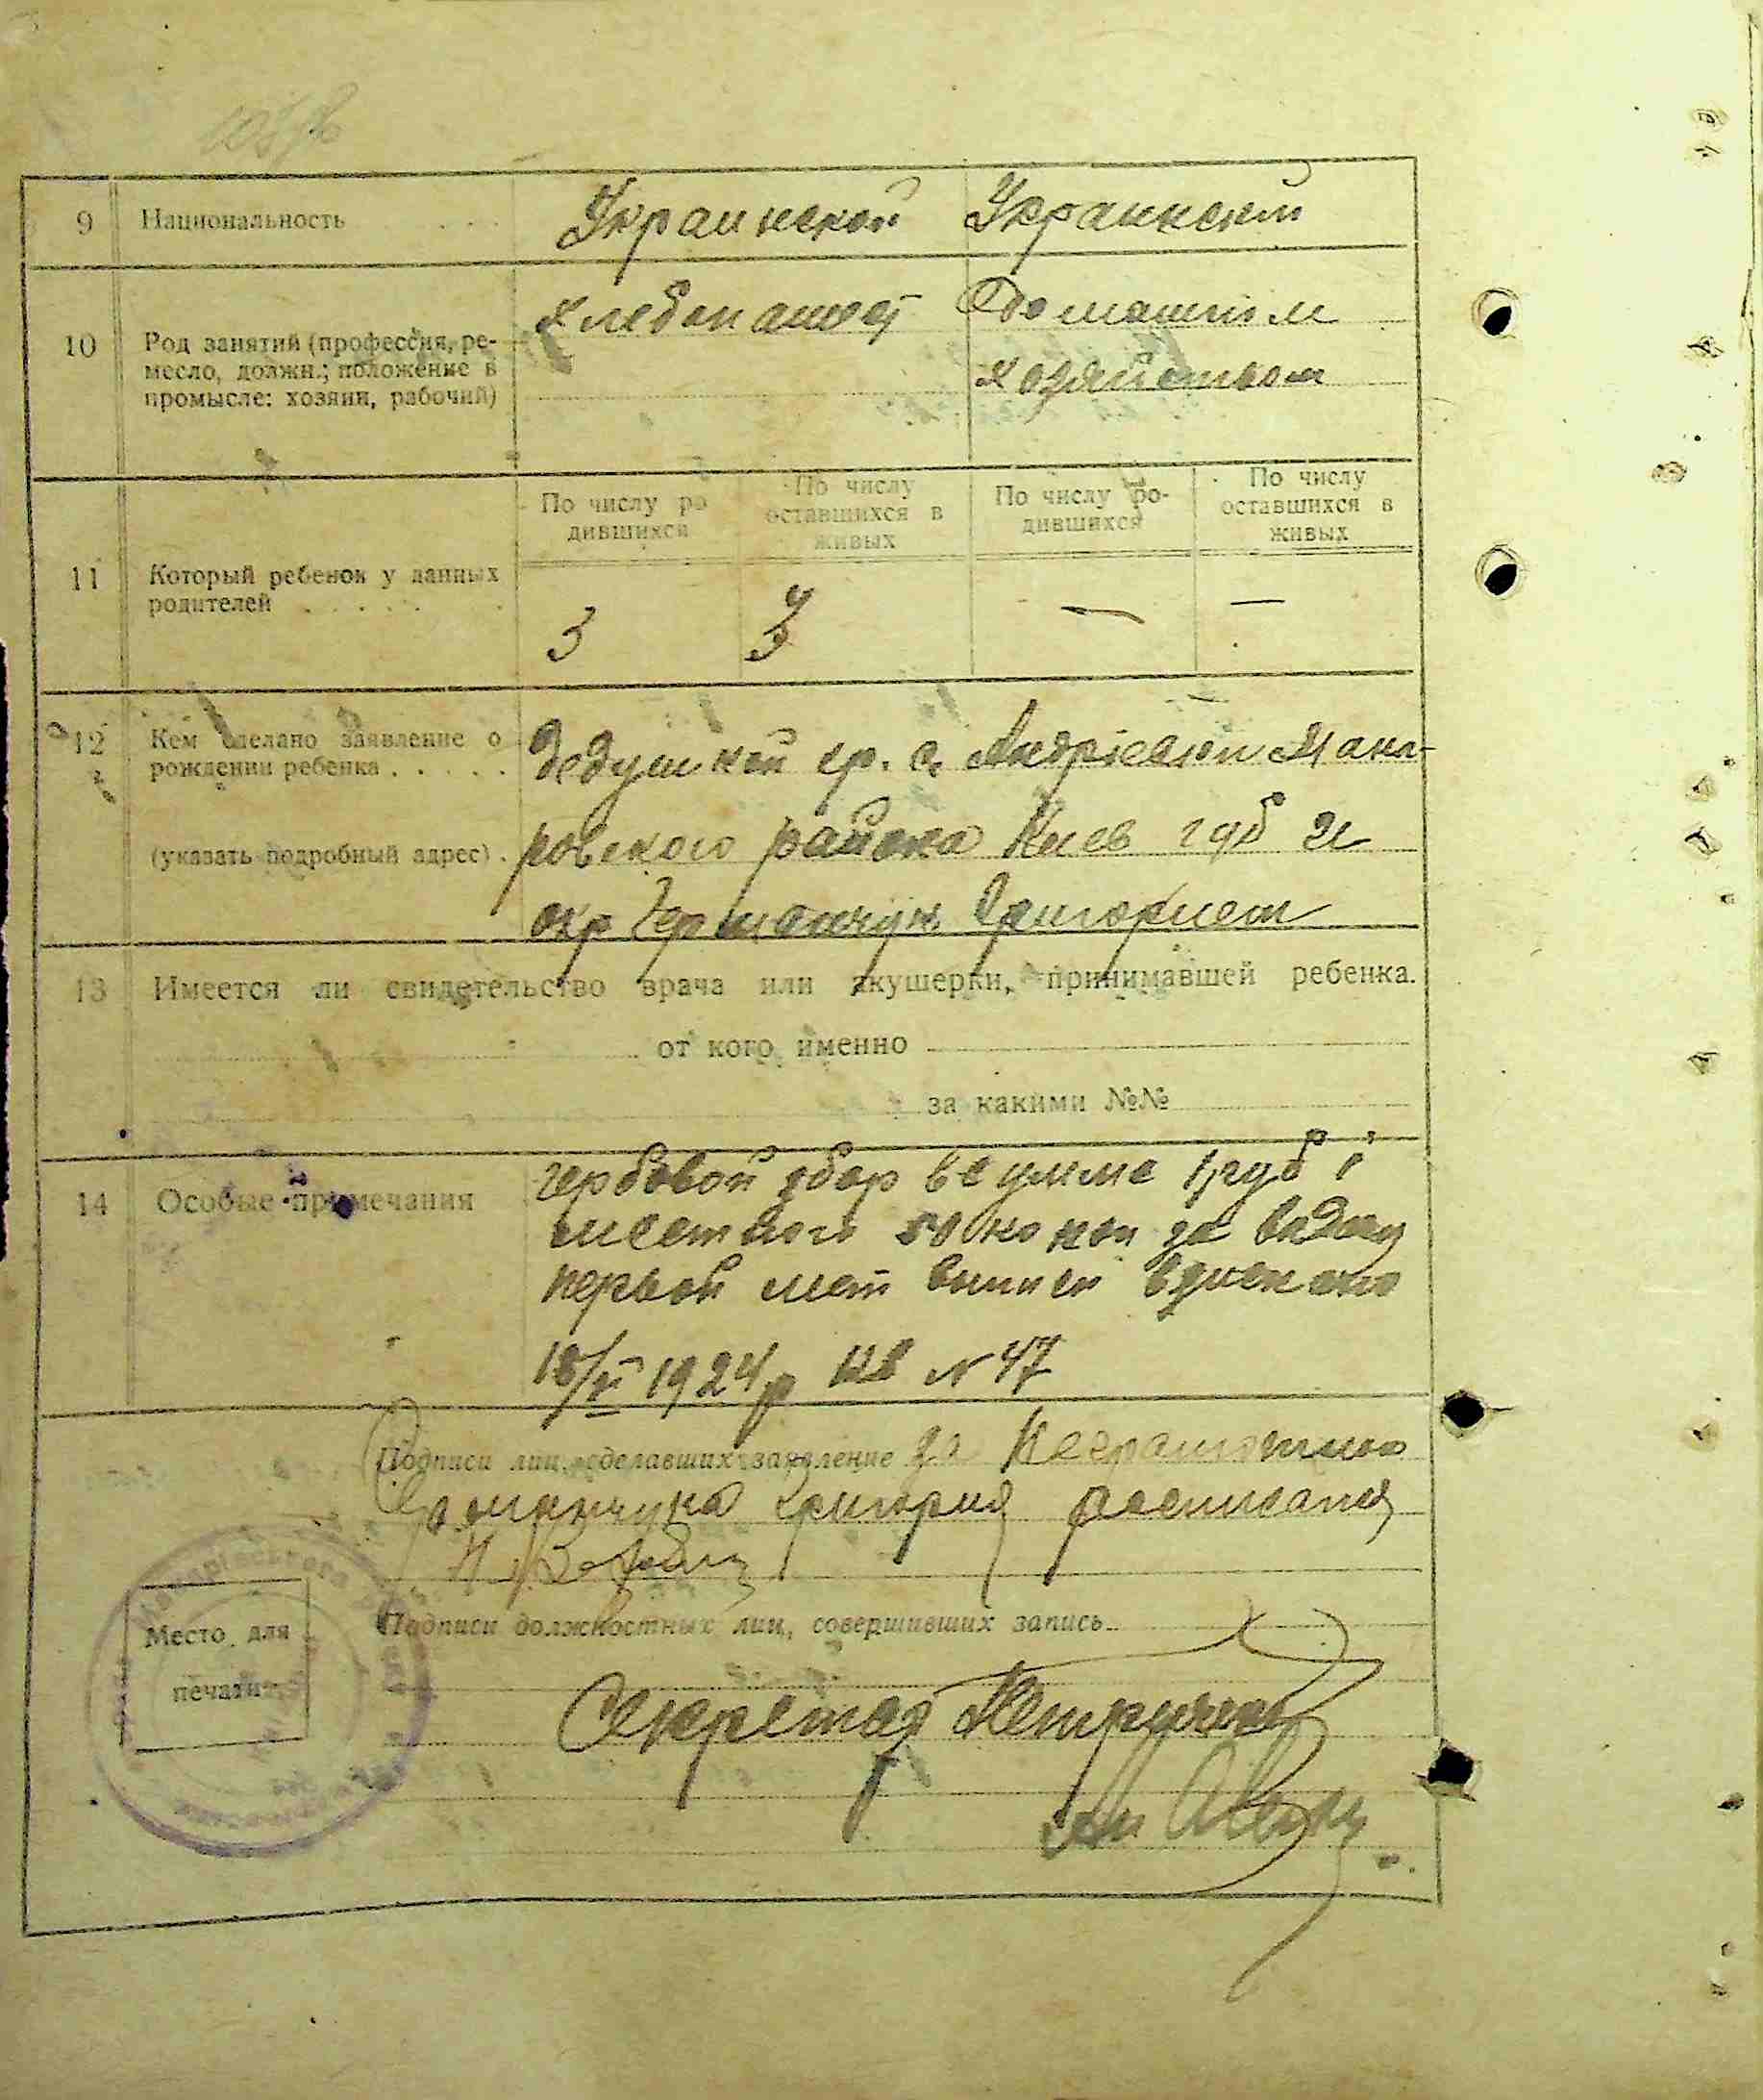 9 Национальность Украинской Украинской
10 Род занятий (профессия, ре-
месло, должн.; положение в
промысле: хозяин, рабочий)
Хлебопашец
Домашнім
хозяйством
11 Который ребенок у данных
родителей
По числу ро
дившихся
По числу
оставшихся в
живых
По числу ро-
дившихся
По числу
оставшихся в
живых
3 3 — —
12 Кем сделано заявление о
рождении ребенка
(указать подробный адрес)
Дедушкой гр. с. Андріевки Мака-
ровского района Киев губ и
окр Германчук Григорием
13 Имеется ли свидетельство врача или акушерки, принимавшей ребенка.
от кого именно
за какими №№
14 Особые примечания
гербовой сбор в сумме 1 руб і
местного 50 копеек за видачу
первой
18/VI 1924 р кв N 47
Подписи лиц, сделавших заявление за неграмотного
Германчука Григория росписался
Подписи должностных лиц, совершивших запись
Место для
печати
Секретар